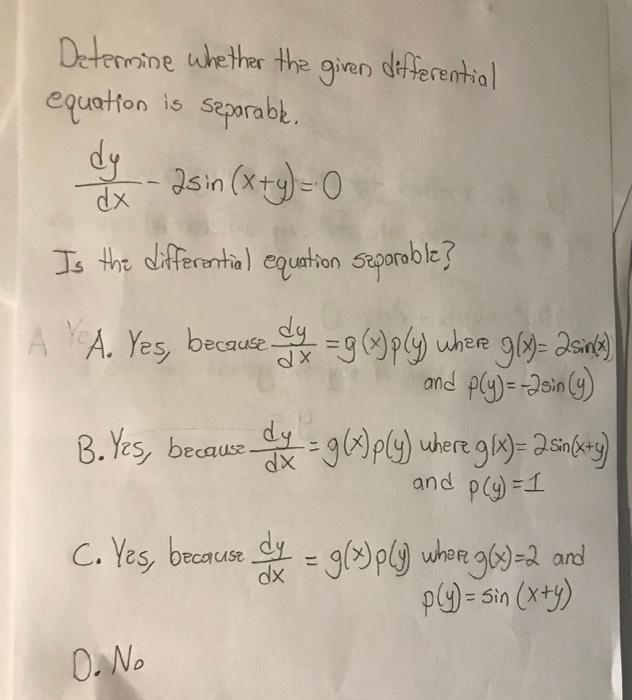 Determine whether the given differential
equation is separable.
dy/dx - 2sin(x+y)=0
Is the differential equation separable?
A. Yes, because dy/dx = g(x)p(y) where g(x)= 2sin(x)
and p(y)=-2sin(y)
B. Yes, because dy/dx = g(x)p(y) where g(x)= 2sin(x+y)
and p(y)=1
C. Yes, because dy/dx = g(x)p(y) where g(x)=2 and
p(y)= sin (x+y)
D. No